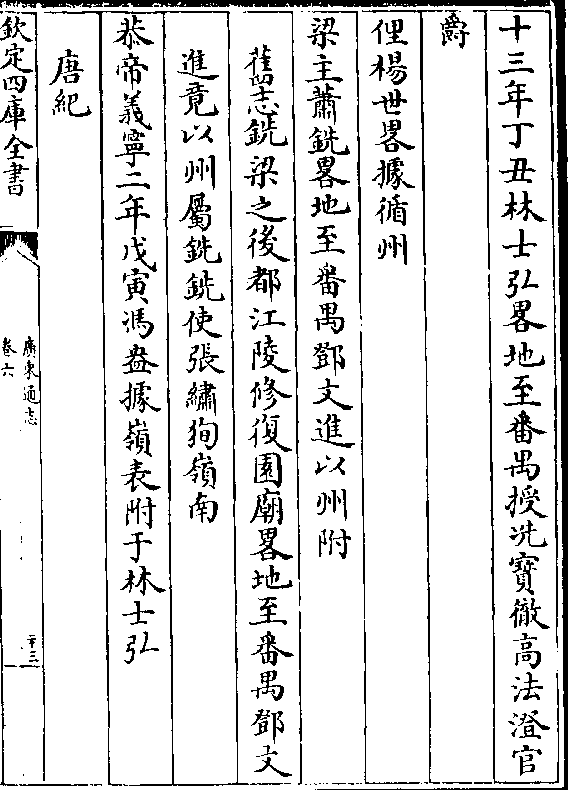 十三年丁丑林士弘畧地至番禺授冼寶徹高法澄官
爵
俚楊世畧據循州
梁主蕭銑畧地至番禺鄧文進以州附
舊志銑梁之後都江陵修復園廟畧地至番禺鄧文
進竟以州屬銑銑使張繡狥嶺南
恭帝義寧二年戊寅馮盎據嶺表附于林士弘
唐紀
欽定四庫全書
廣東通志
卷六
二十三